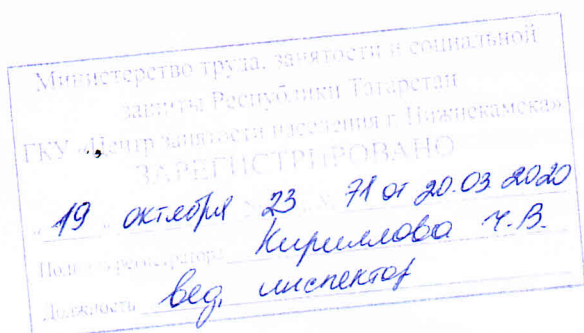 Министерство труда, занятости и социальной
защиты Республики Татарстан
ГКУ «Центр занятости населения г. Нижнекамска»
ЗАРЕГИСТРИРОВАНО
19 октября 23 71 от 20.03.2020
Кириллова Ч.В.
Должность вед. инспектор